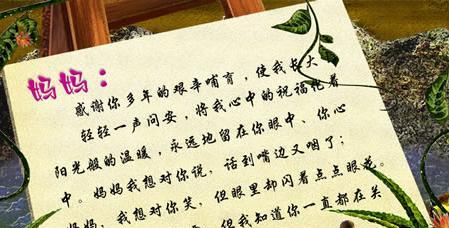 妈妈：
感谢你多年的艰辛哺育，使我长大
轻轻一声问安，将我心中的祝福托着
阳光般的温暖，永远地留在你眼中、你心
中。妈妈我想对你说，话到嘴边又咽了；
妈妈，我想对你笑，但眼里却闪着点点眼花。
但我知道你一直都在关